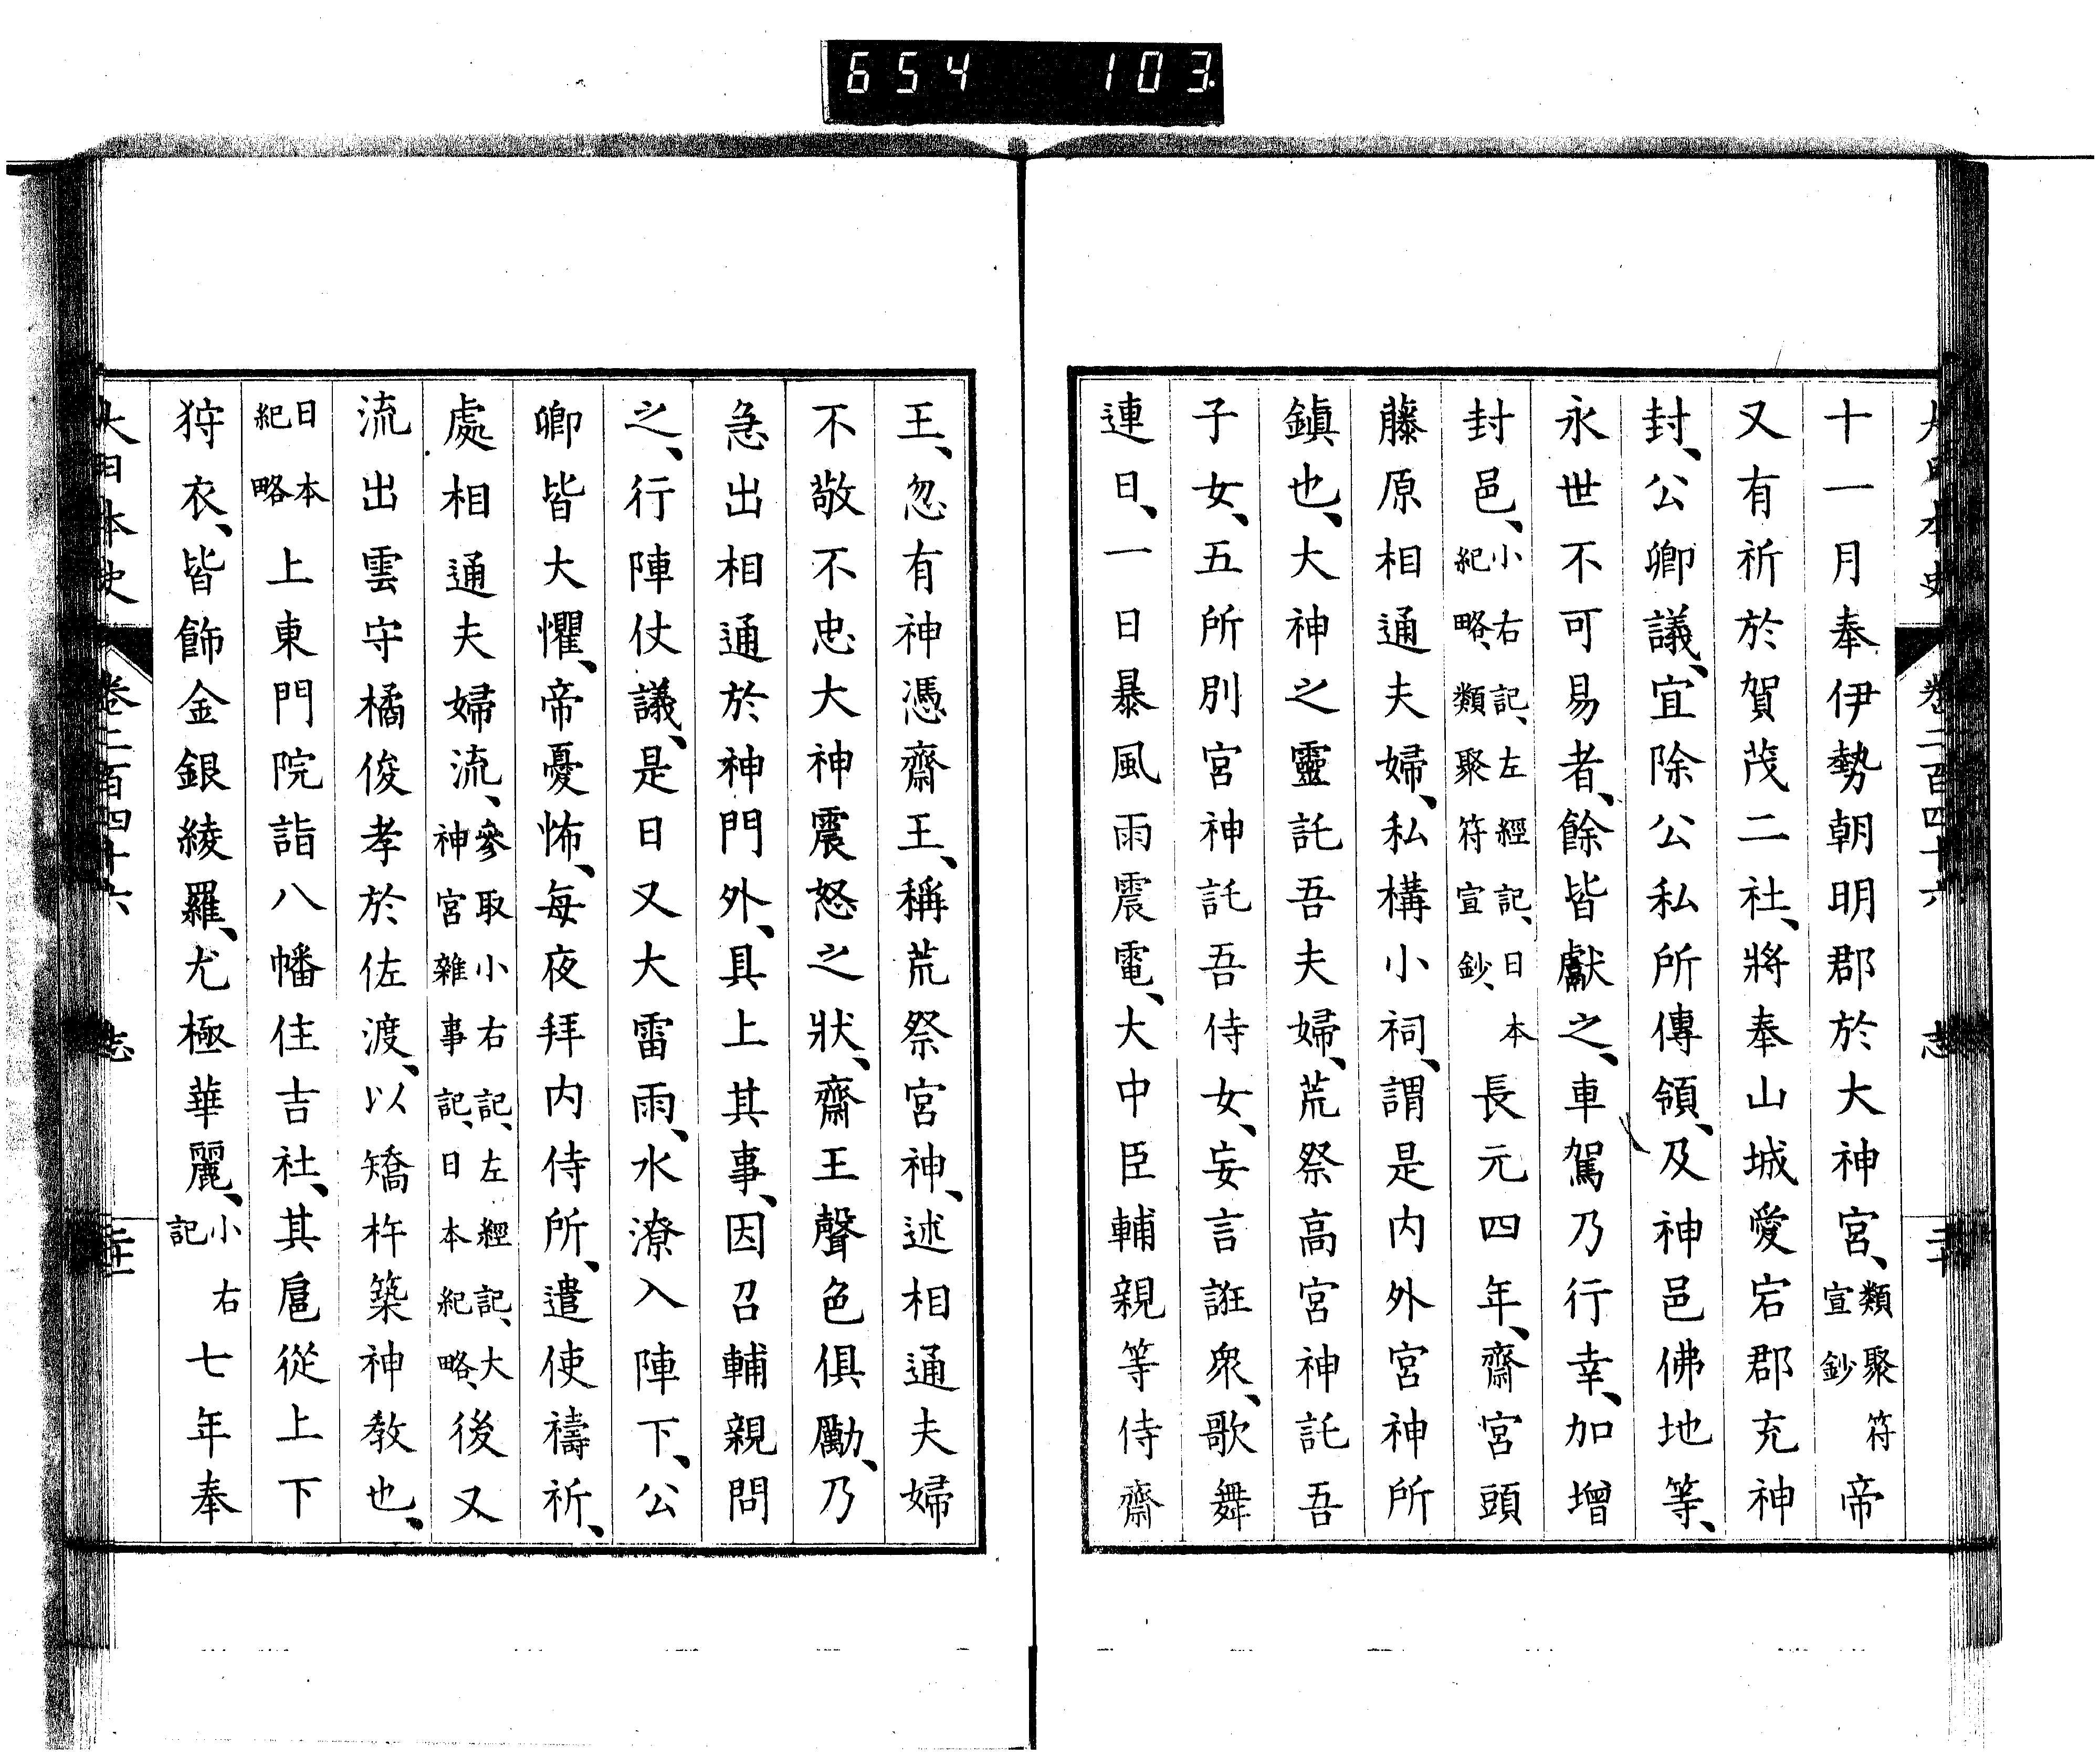 654 103
大日本史 卷二百四十六 志 二十
十一月奉伊勢朝明郡於大神宮、類聚符宣鈔帝
又有祈於賀茂二社、將奉山城愛宕郡充神
封、公卿議、宜除公私所傳領、及神邑佛地等、
永世不可易者、餘皆獻之、車駕乃行幸、加增
封邑、小右記、左經記、日本紀略、類聚符宣鈔、長元四年、齋宮頭
藤原相通夫婦、私構小祠、謂是内外宮神所
鎭也、大神之靈託吾夫婦、荒祭高宮神託吾
子女、五所別宮神託吾侍女、妄言誑衆、歌舞
連日、一日暴風雨震電、大中臣輔親等侍齋
王、忽有神憑齋王、稱荒祭宮神、述相通夫婦
不敬不忠大神震怒之狀、齋王聲色俱勵、乃
急出相通於神門外、具上其事、因召輔親問
之、行陣仗議、是日又大雷雨、水潦入陣下、公
卿皆大懼、帝憂怖、每夜拜内侍所、遣使禱祈、
處相通夫婦流、參取小右記、左經記、大神宮雜事記、日本紀略、後又
流出雲守橘俊孝於佐渡、以矯杵築神教也、
日本紀略上東門院詣八幡住吉社、其扈從上下
狩衣、皆飾金銀綾羅、尤極華麗、小右記七年奉
大日本史 卷二百四十六 志